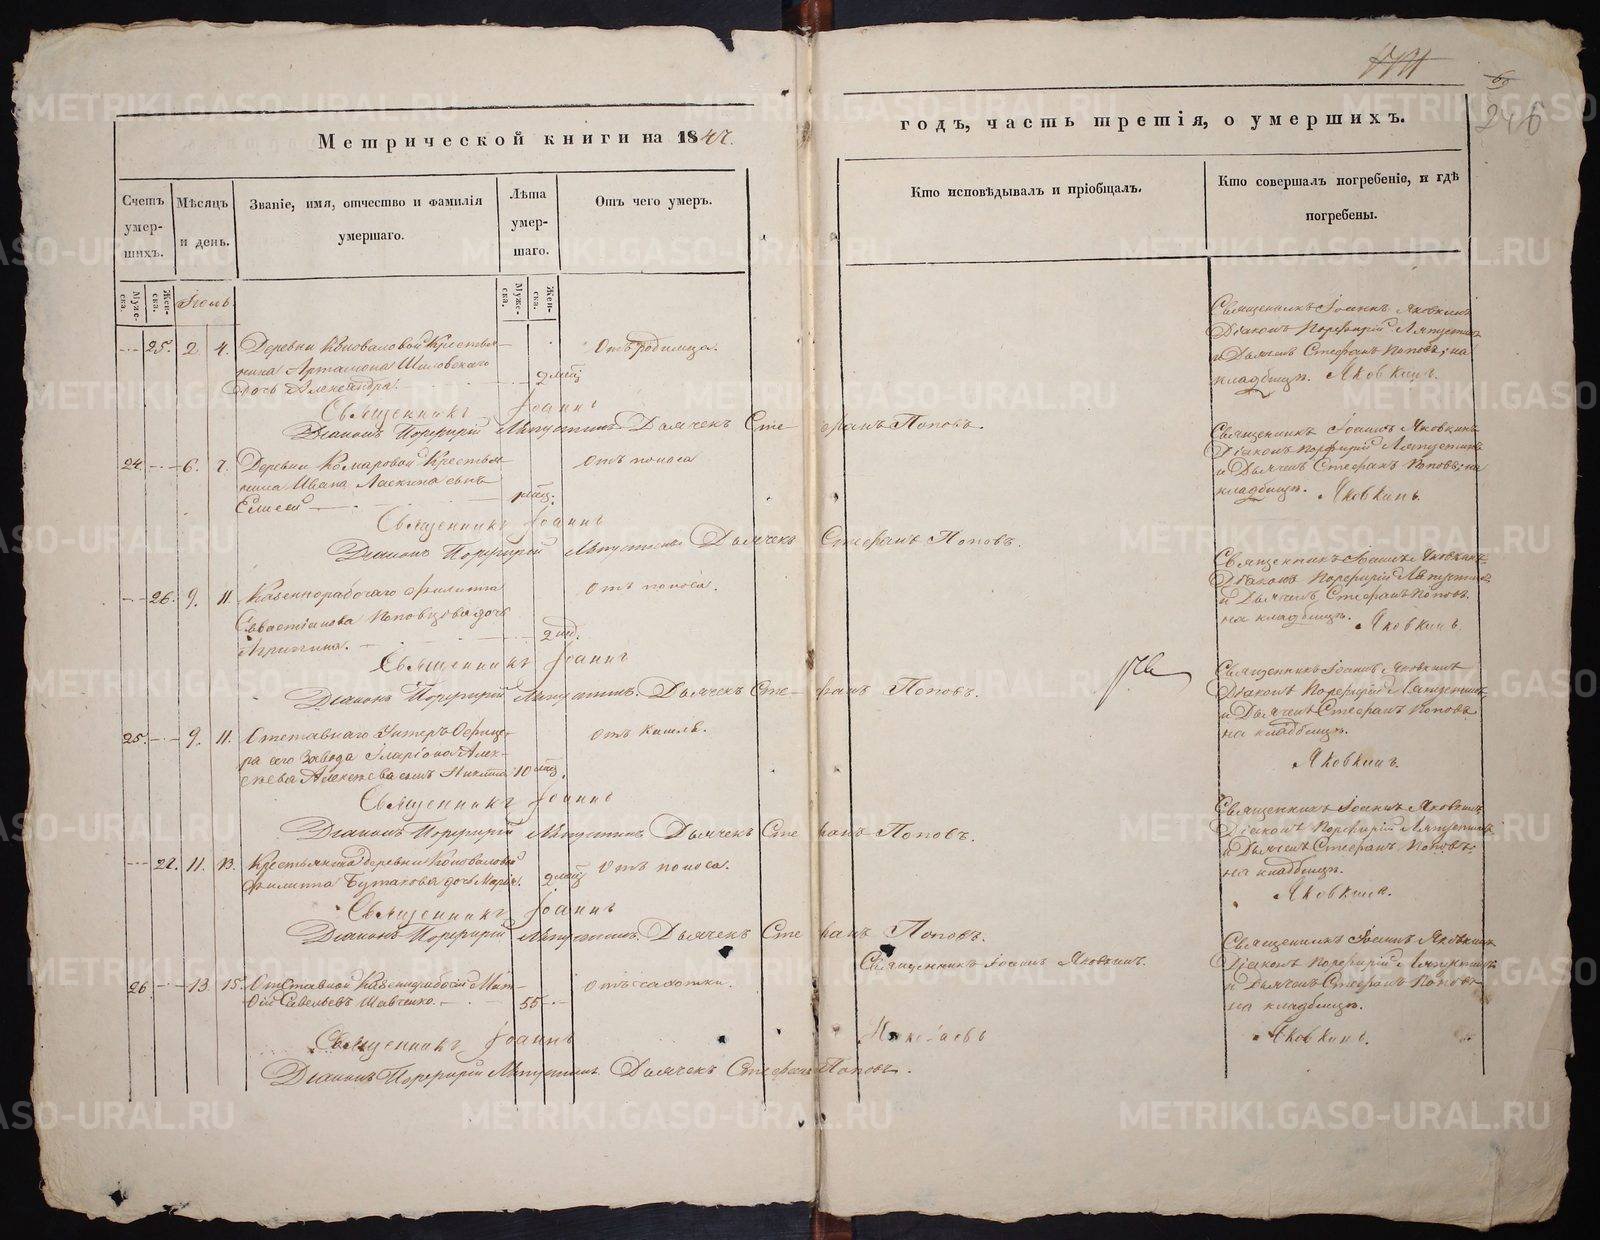 246
Метрической книги на 1847.
годъ, часть третія, о умершихъ.
Счетъ умершихъ.
Мѣсяцъ и день.
Званіе, имя, отчество и фамилія умершаго.
Лѣта умершаго.
Отъ чего умеръ.
Кто исповѣдывалъ и пріобщалъ.
Кто совершалъ погребеніе, и гдѣ погребены.
Мужеска.
Женска.
Мужеска.
Женска.
Іюль
25. 2 4. Деревни Коноваловой Крестья-
нина Артамона Шиловскаго
дочь Александра.
2
Отъ родимца.
Священникъ Іоаннъ Яковкинъ
Діаконъ Порфирій Ляпустинъ
и Дьячекъ Стефанъ Поповъ, на
кладбищѣ. Яковкинъ.
Священникъ Іоаннъ
Діаконъ Порфирій Ляпустинъ Дьячекъ Стефанъ Поповъ.
24. 6. 7. Деревни Комаровой Крестья-
нина Ивана Ласкина сынъ
Елисей
Отъ поноса
Священникъ Іоаннъ Яковкинъ
Діаконъ Порфирій Ляпустинъ
и Дьячекъ Стефанъ Поповъ, на
кладбищѣ. Яковкинъ.
Священникъ Іоаннъ
Діаконъ Порфирій Ляпустинъ Дьячекъ Стефанъ Поповъ.
26. 9. 11. Казеннорабочаго Филиппа
Севастіанова Поповцова дочь
2 нед.
Отъ поноса.
Священникъ Іоаннъ Яковкинъ
Діаконъ Порфирій Ляпустинъ
и Дьячекъ Стефанъ Поповъ.
на кладбищѣ. Яковкинъ
Священникъ Іоаннъ
Діаконъ Порфирій Ляпустинъ. Дьячекъ Стефанъ Поповъ.
25. 9. 11. Отставнаго Унтеръ Офице-
ра сего Завода Иларіона Алек-
сѣева Алексѣева сынъ Никита 10
Отъ кашля.
Священникъ Іоаннъ Яковкинъ
Діаконъ Порфирій Ляпустинъ
и Дьячекъ Стефанъ Поповъ
на кладбищѣ.
Яковкинъ.
Священникъ Іоаннъ
Діаконъ Порфирій Ляпустинъ Дьячекъ Стефанъ Поповъ.
27. 11. 13. Крестьянина деревни Коноваловой
Филиппа Бутакова дочь Марія.
2
Отъ поноса.
Священникъ Іоаннъ Яковкинъ
Діаконъ Порфирій Ляпустинъ
и Дьячекъ Стефанъ Поповъ,
на кладбищѣ.
Яковкинъ.
Священникъ Іоаннъ
Діаконъ Порфирій Ляпустинъ. Дьячекъ Стефанъ Поповъ.
26 13. 15. Отставной Казеннорабочій
Савельевъ Шавченко.
55
Отъ чахотки.
Священникъ Іоаннъ Яковкинъ.
Священникъ Іоаннъ Яковкинъ
Діаконъ Порфирій Ляпустинъ
и Дьячекъ Стефанъ Поповъ
на кладбищѣ.
Яковкинъ.
Священникъ Іоаннъ
Діаконъ Порфирій Ляпустинъ. Дьячекъ Стефанъ Поповъ.
METRIKI.GASO-URAL.RU